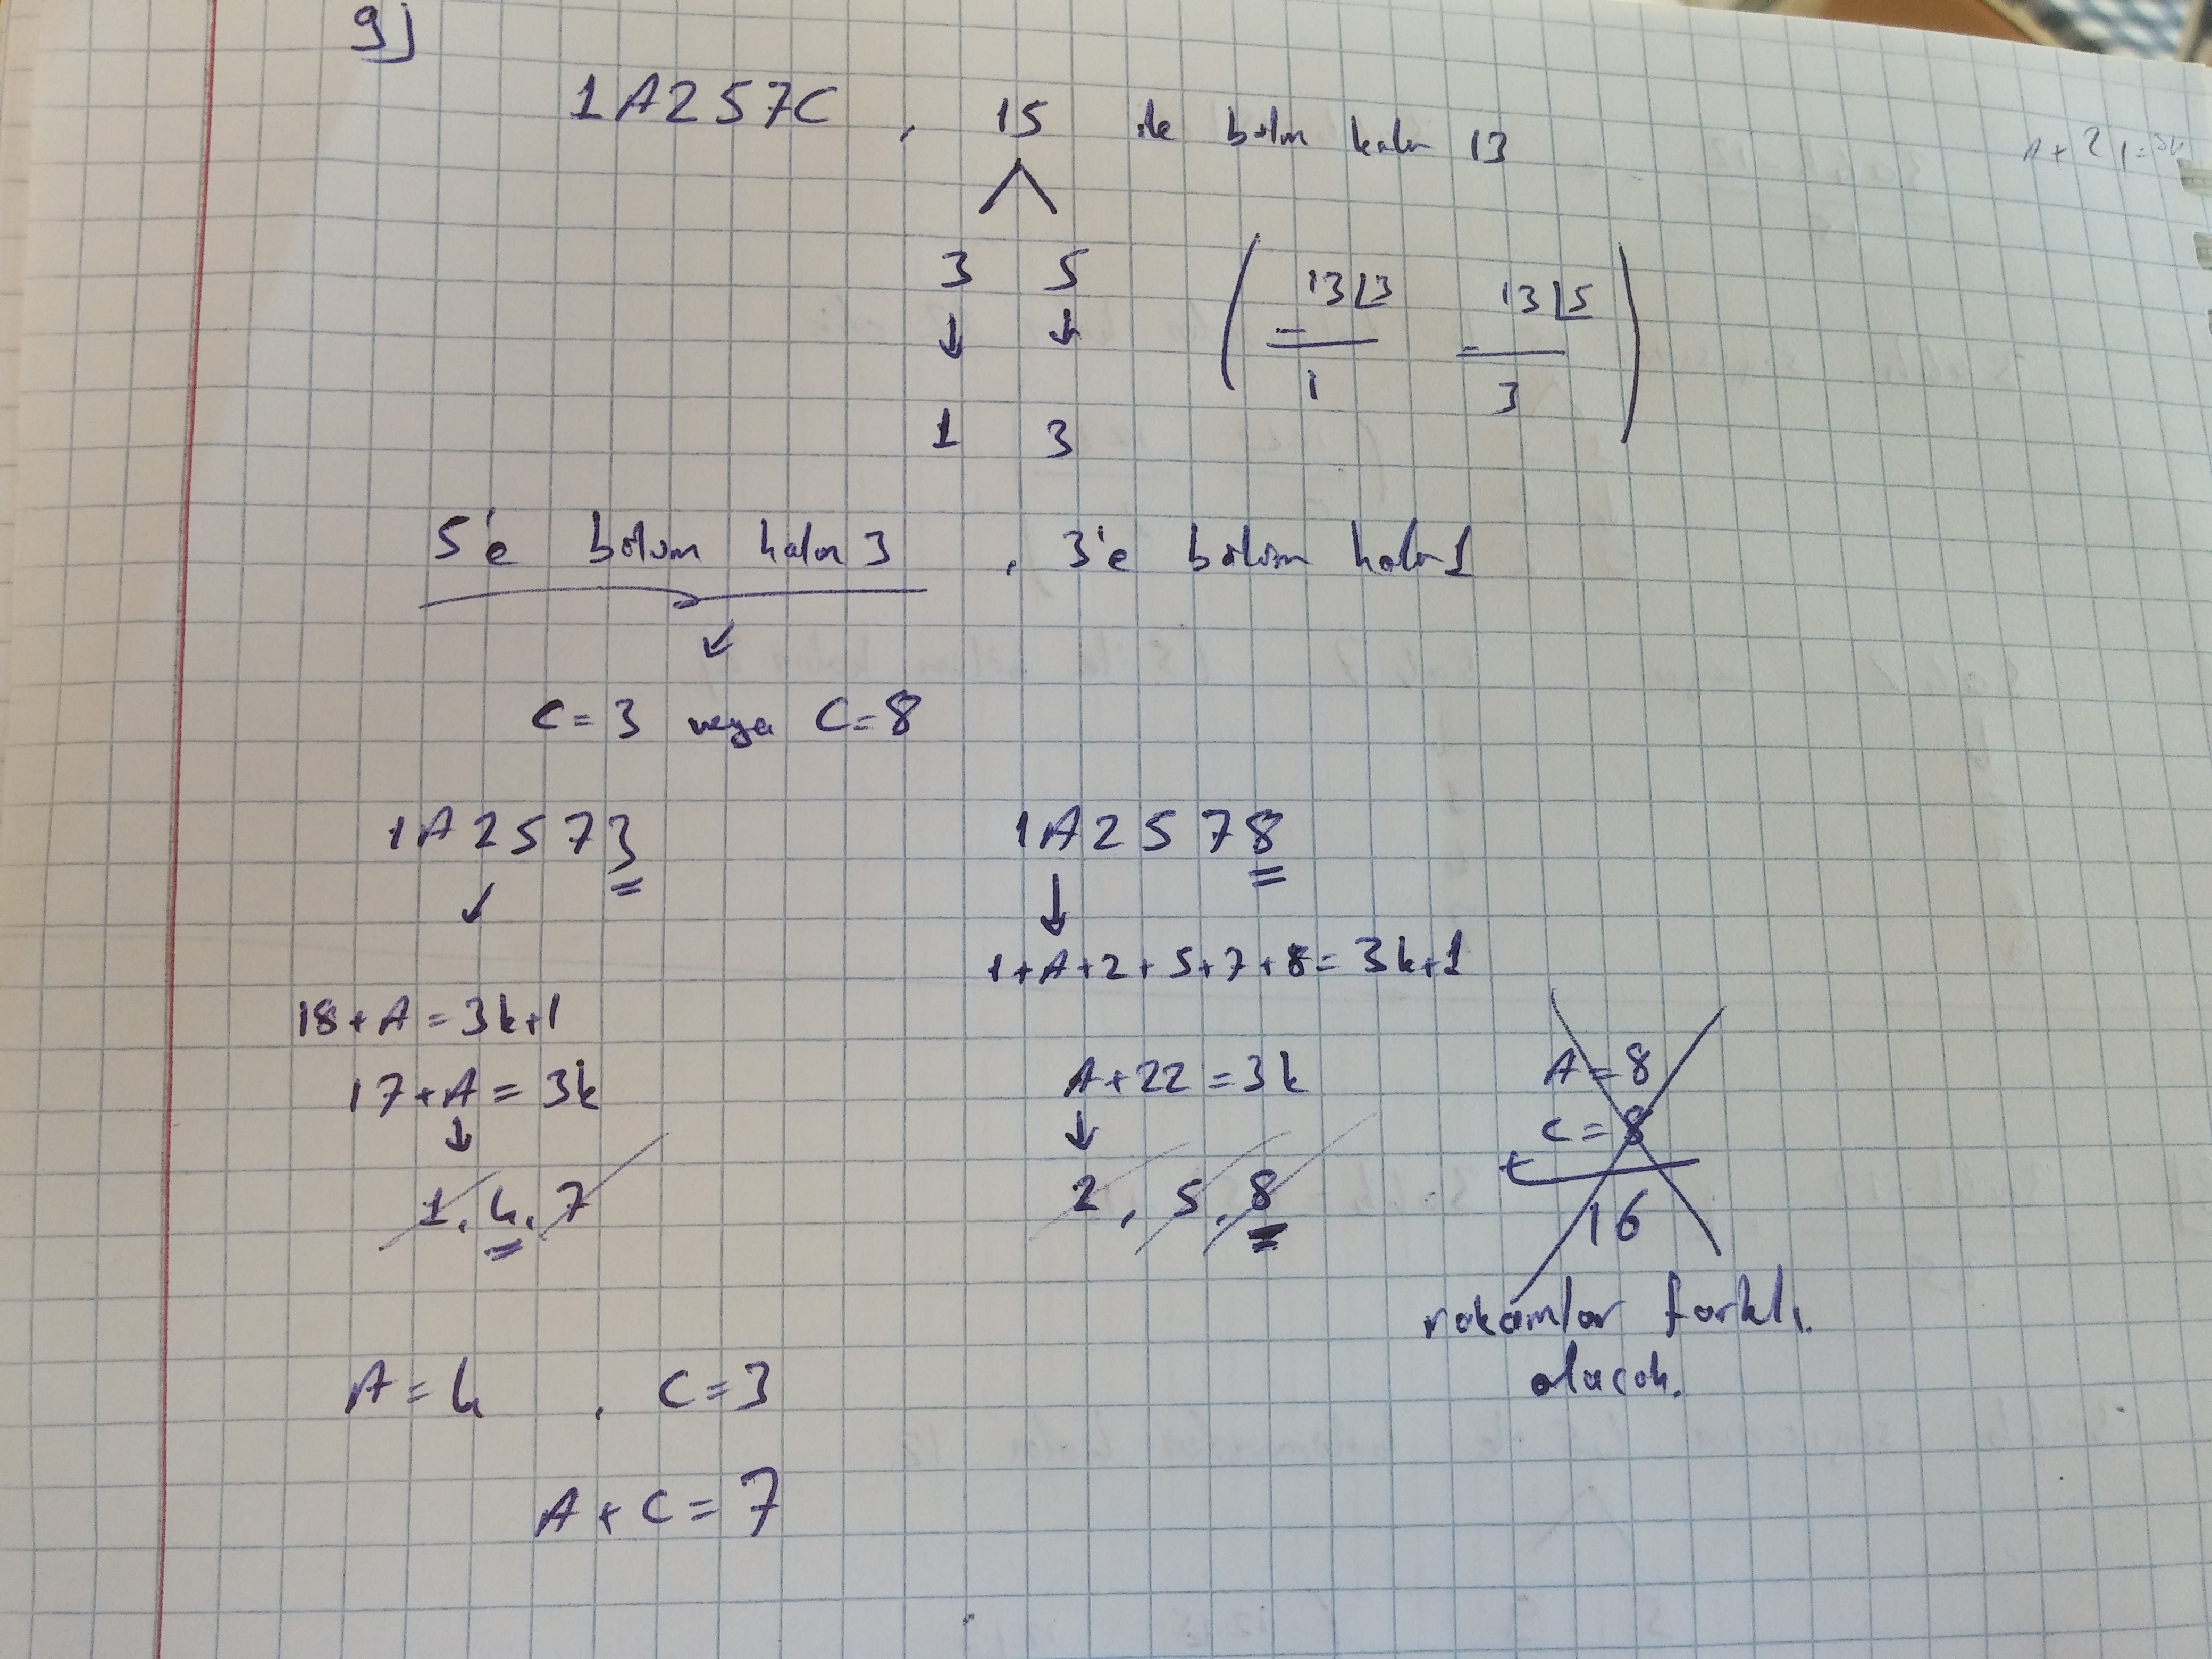 9)
1A257C , 15 ile bölüm kalan 13
3 5
13 3 13 5
1 3
1 3
5'e bölüm kalan 3 , 3'e bölüm kalan 1
C=3 veya C=8
1A2573 1A2578
1+A+2+5+7+8=3k+1
18+A=3k+1
17+A=3k A+22=3k A=8
C=8
1, 4, 7 2, 5, 8
16
rakamlar farklı
olacak.
A=4 , C=3
A+C=7